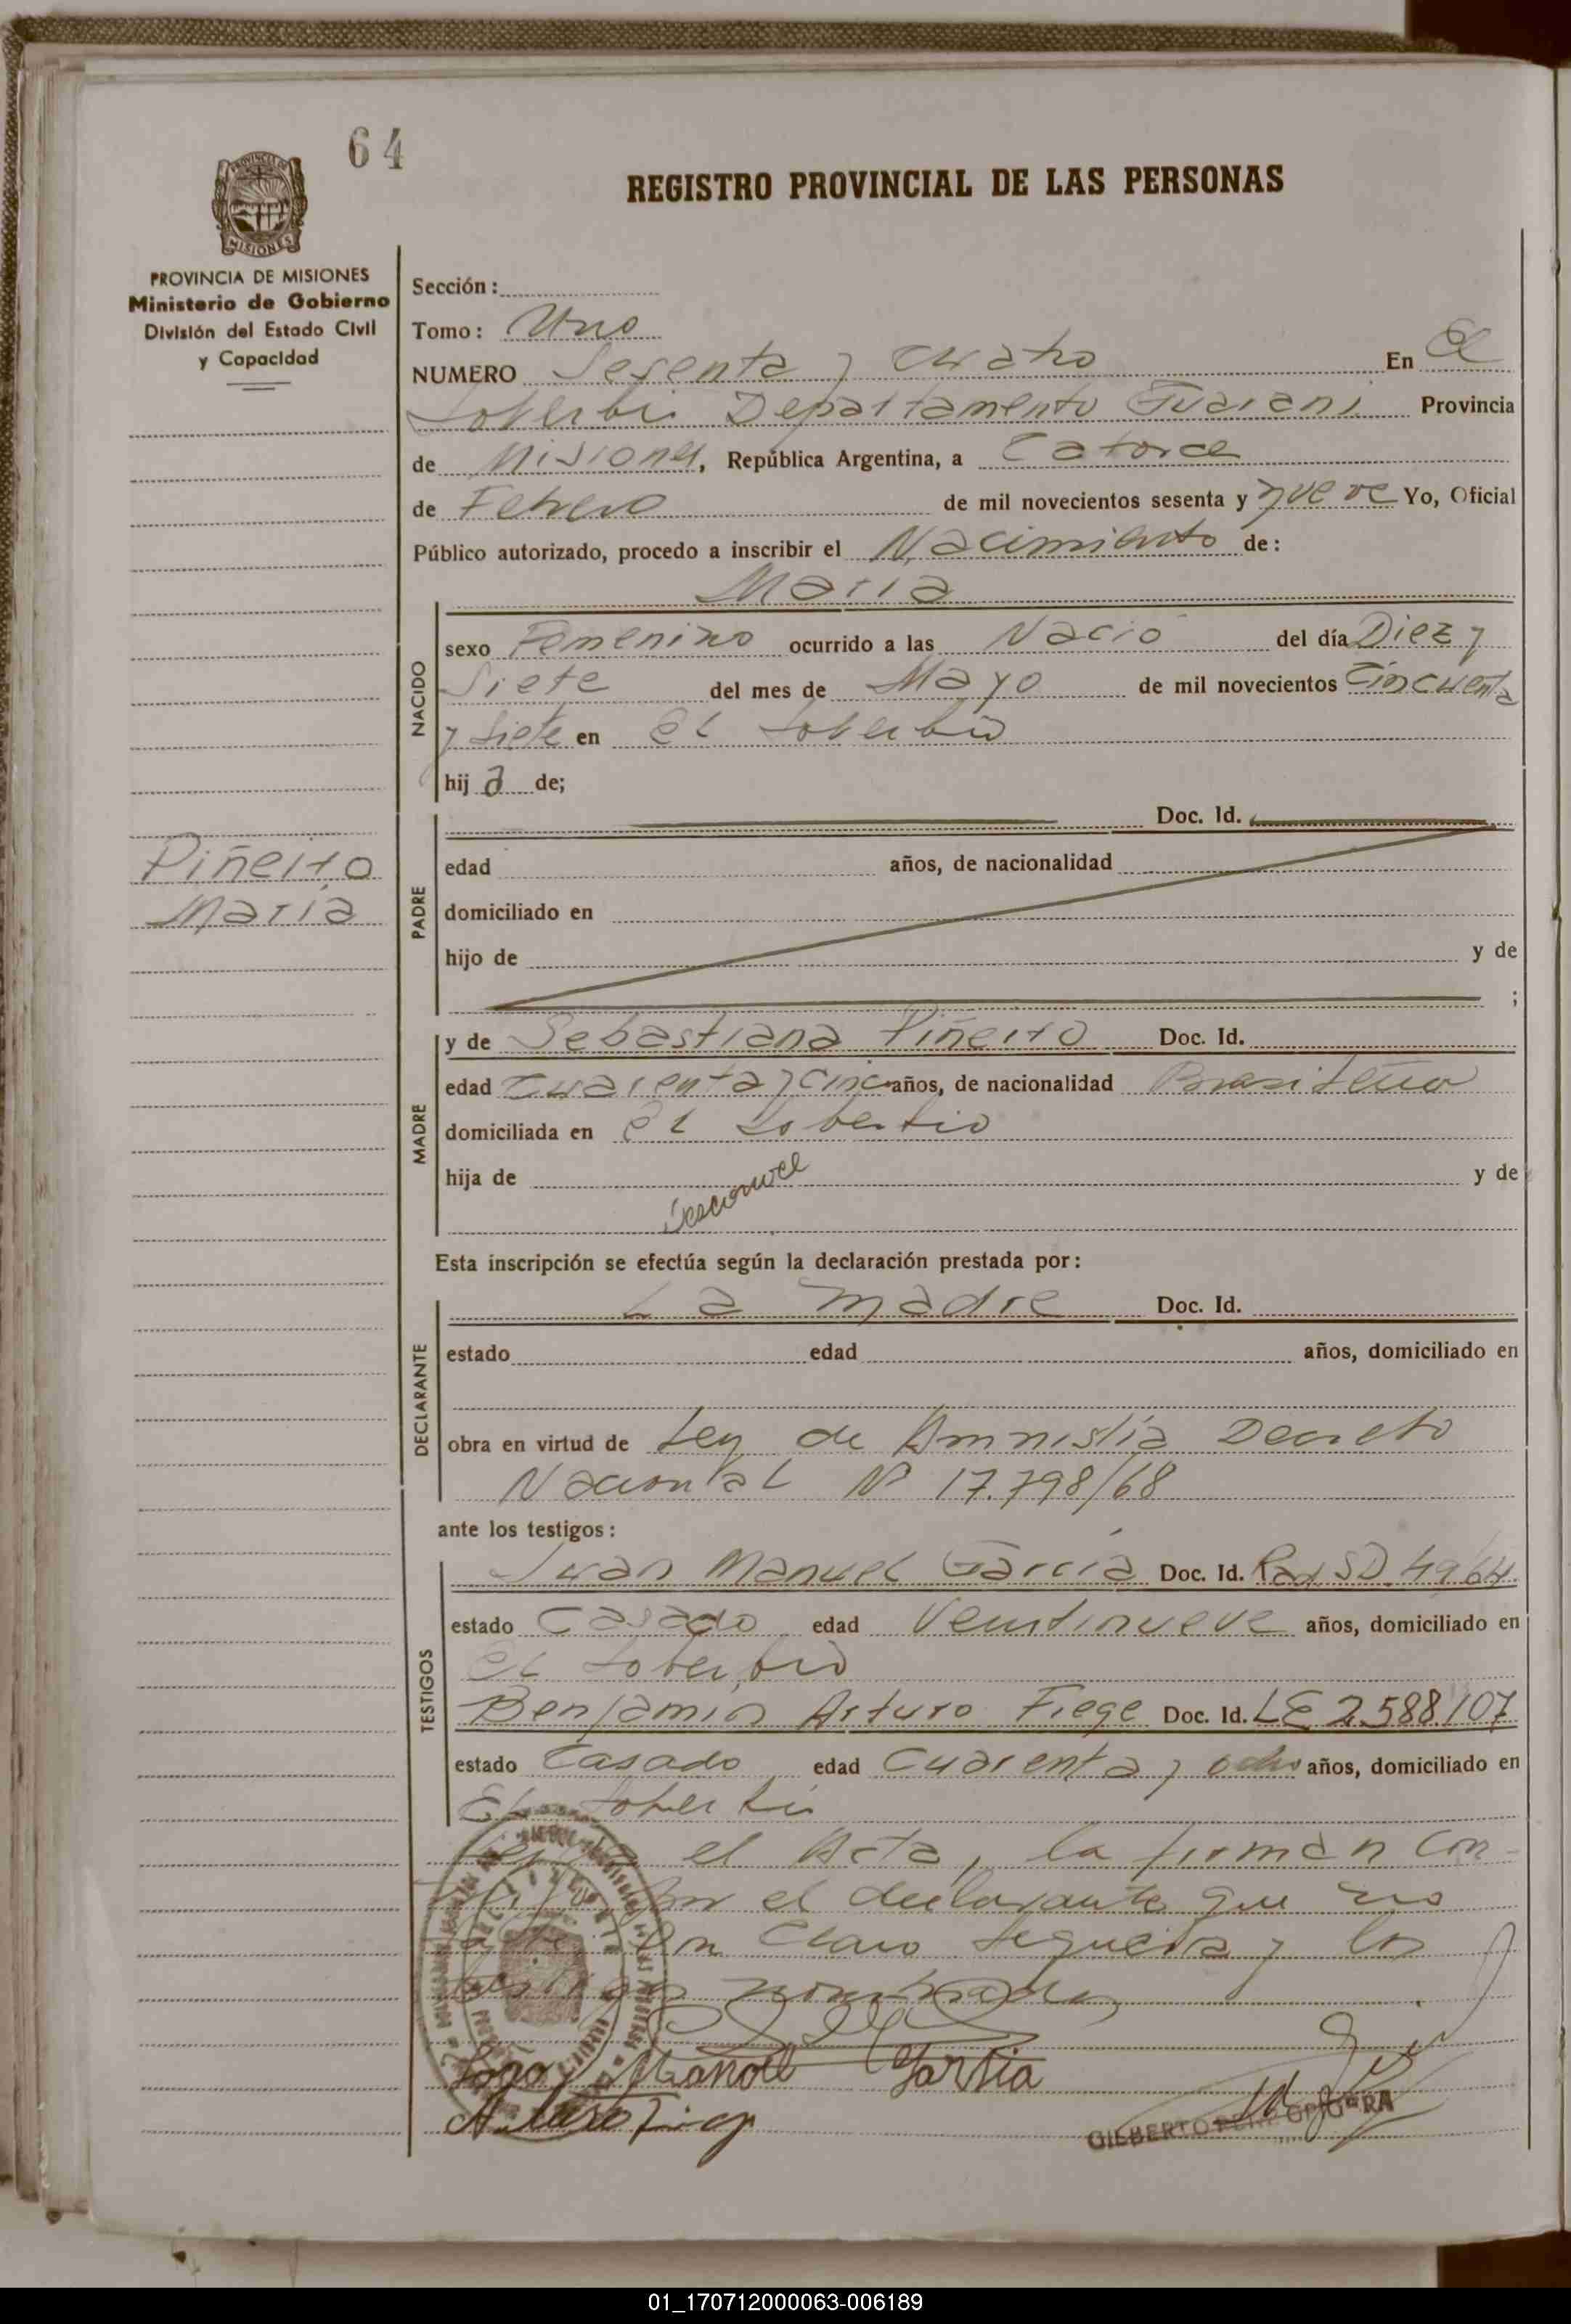 64
REGISTRO PROVINCIAL DE LAS PERSONAS
PROVINCIA DE MISIONES
Ministerio de Gobierno
División del Estado Civil
y Capacidad
Sección:
Tomo: Uno
NUMERO Sesenta y Cuatro En El
Soberbio Departamento Guarani Provincia
de Misiones, República Argentina, a Catorce
de Febrero de mil novecientos sesenta y nueve Yo, Oficial
Público autorizado, procedo a inscribir el Nacimiento de:
Maria
NACIDO
sexo Femenino ocurrido a las Nació del día Diez y
Siete del mes de Mayo de mil novecientos Cincuenta
y Siete en El Soberbio
hija de;
Piñeiro
Maria
PADRE
Doc. Id.
edad años, de nacionalidad
domiciliado en
hijo de y de
;
MADRE
y de Sebastiana Piñeiro Doc. Id.
edad Cuarenta y cinco años, de nacionalidad Brasileña
domiciliada en El Soberbio
hija de Desconoce y de
Esta inscripción se efectúa según la declaración prestada por:
DECLARANTE
La madre Doc. Id.
estado edad años, domiciliado en
obra en virtud de Ley de Amnistia Decreto
Nacional Nº 17.798/68
ante los testigos:
TESTIGOS
Juan Manuel Garcia Doc. Id. Rad SD. 4964
estado Casado edad Veintinueve años, domiciliado en
El Soberbio
Benjamin Arturo Fiege Doc. Id. LE 2.588.107
estado Casado edad Cuarenta y ocho años, domiciliado en
El Soberbio
el Acta, la firman con-
por el declarante que no
Don Claro Sequeira y los
testigos nombrados
Manoel Garsia
Arturo Fiege
GILBERTO
01_170712000063-006189